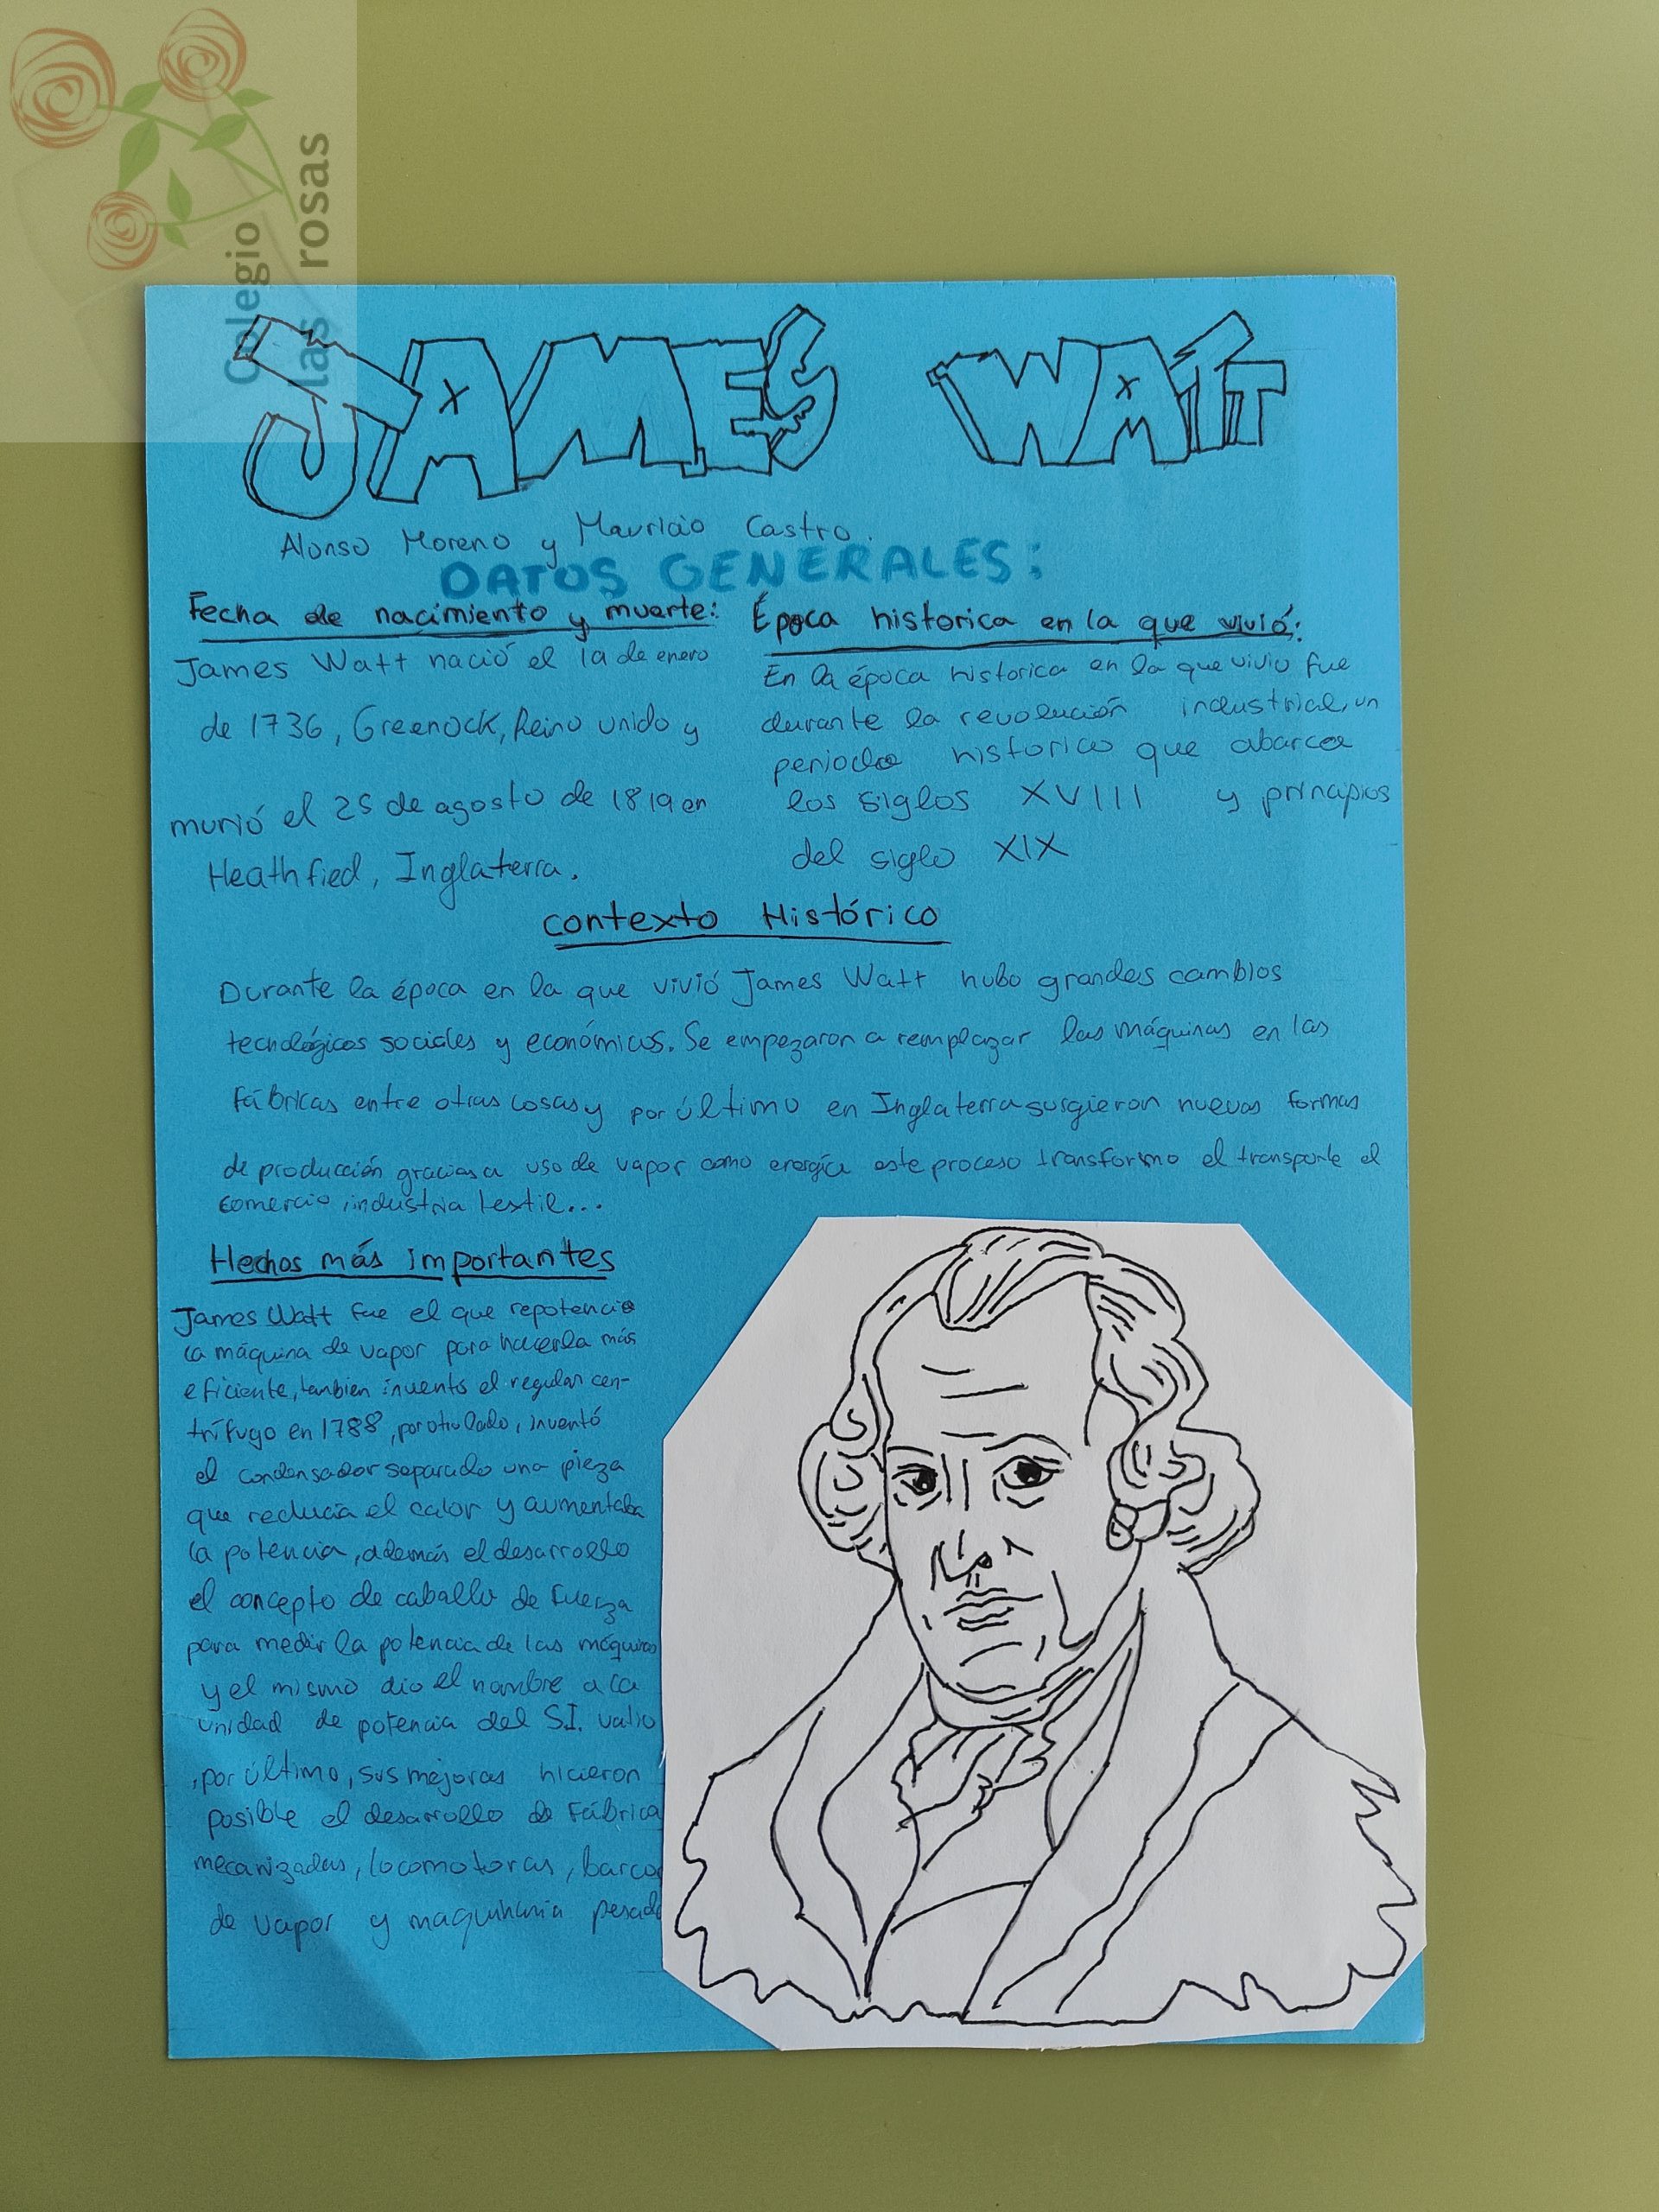 Colegio
las rosas
JAMES WATT
Alonso Moreno y Mauricio Castro.
DATOS GENERALES:
Fecha de nacimiento y muerte:
James Watt nació el 19 de enero
de 1736, Greenock, Reino unido y
murió el 25 de agosto de 1819 en
Heathfied, Inglaterra.
Época historica en la que vivió:
En la época historica en la que vivio fue
durante la revolución industrial, un
periodo historico que abarca
los siglos XVIII y principios
del siglo XIX
contexto Histórico
Durante la época en la que vivió James Watt hubo grandes cambios
tecnológicos sociales y económicos. Se empezaron a remplazar las máquinas en las
Fábricas entre otras cosas y por último en Inglaterra surgieron nuevas formas
de producción gracias a uso de vapor como energía este proceso transformo el transporte el
comercio, industria textil...
Hechos más importantes
James Watt fue el que repotencio
la máquina de vapor para hacerla más
eficiente, tanbien inventó el regular cen-
trífugo en 1788, por otro lado, inventó
el condensador separado una pieza
que reducia el calor y aumentaba
la potencia, además el desarrollo
el concepto de caballo de fuerza
para medir la potencia de las máquinas
y el mismo dio el nombre a la
unidad de potencia del S.I. vatio
, por último, sus mejoras hicieron
posible el desarrollo de Fábrica
mecanizadas, locomotoras, barcos
de vapor y maquinaria pesada